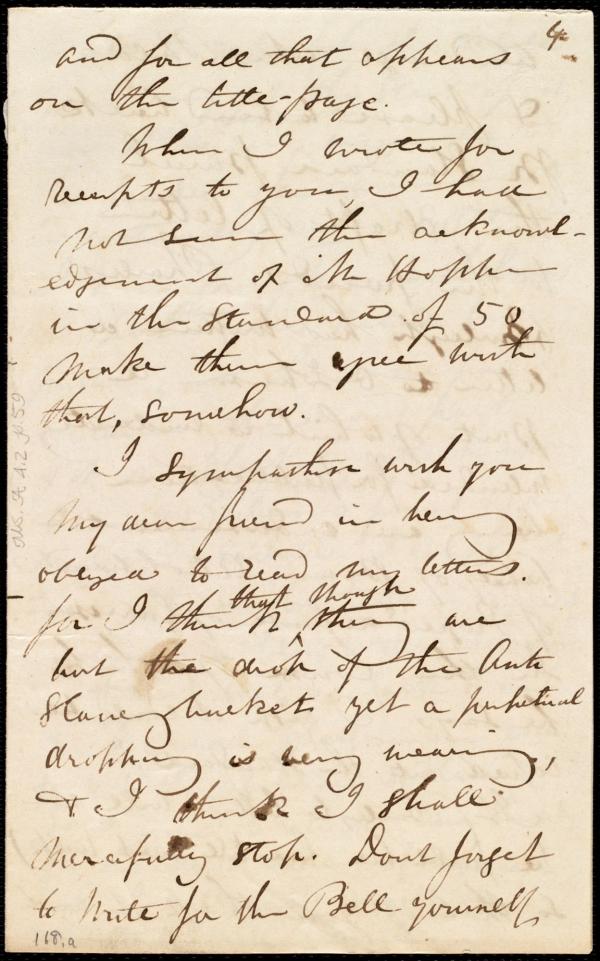 4
and for all that appears
on the title-page.
When I wrote for
receipts to you, I had
not seen the acknowl-
edgement of Mr Hopper
in the Standard. of 50
Make them agree with
that, somehow.
I sympathise with you
My dear friend in being
obliged to read my letters.
for I think that though they are
but the drop of the Anti
Slavery bucket yet a perpetual
dropping is very wearing,
& I think I shall
mercifully stop. Dont forget
to write for the Bell yourself
Ms. A 4.2 p. 59
168.a